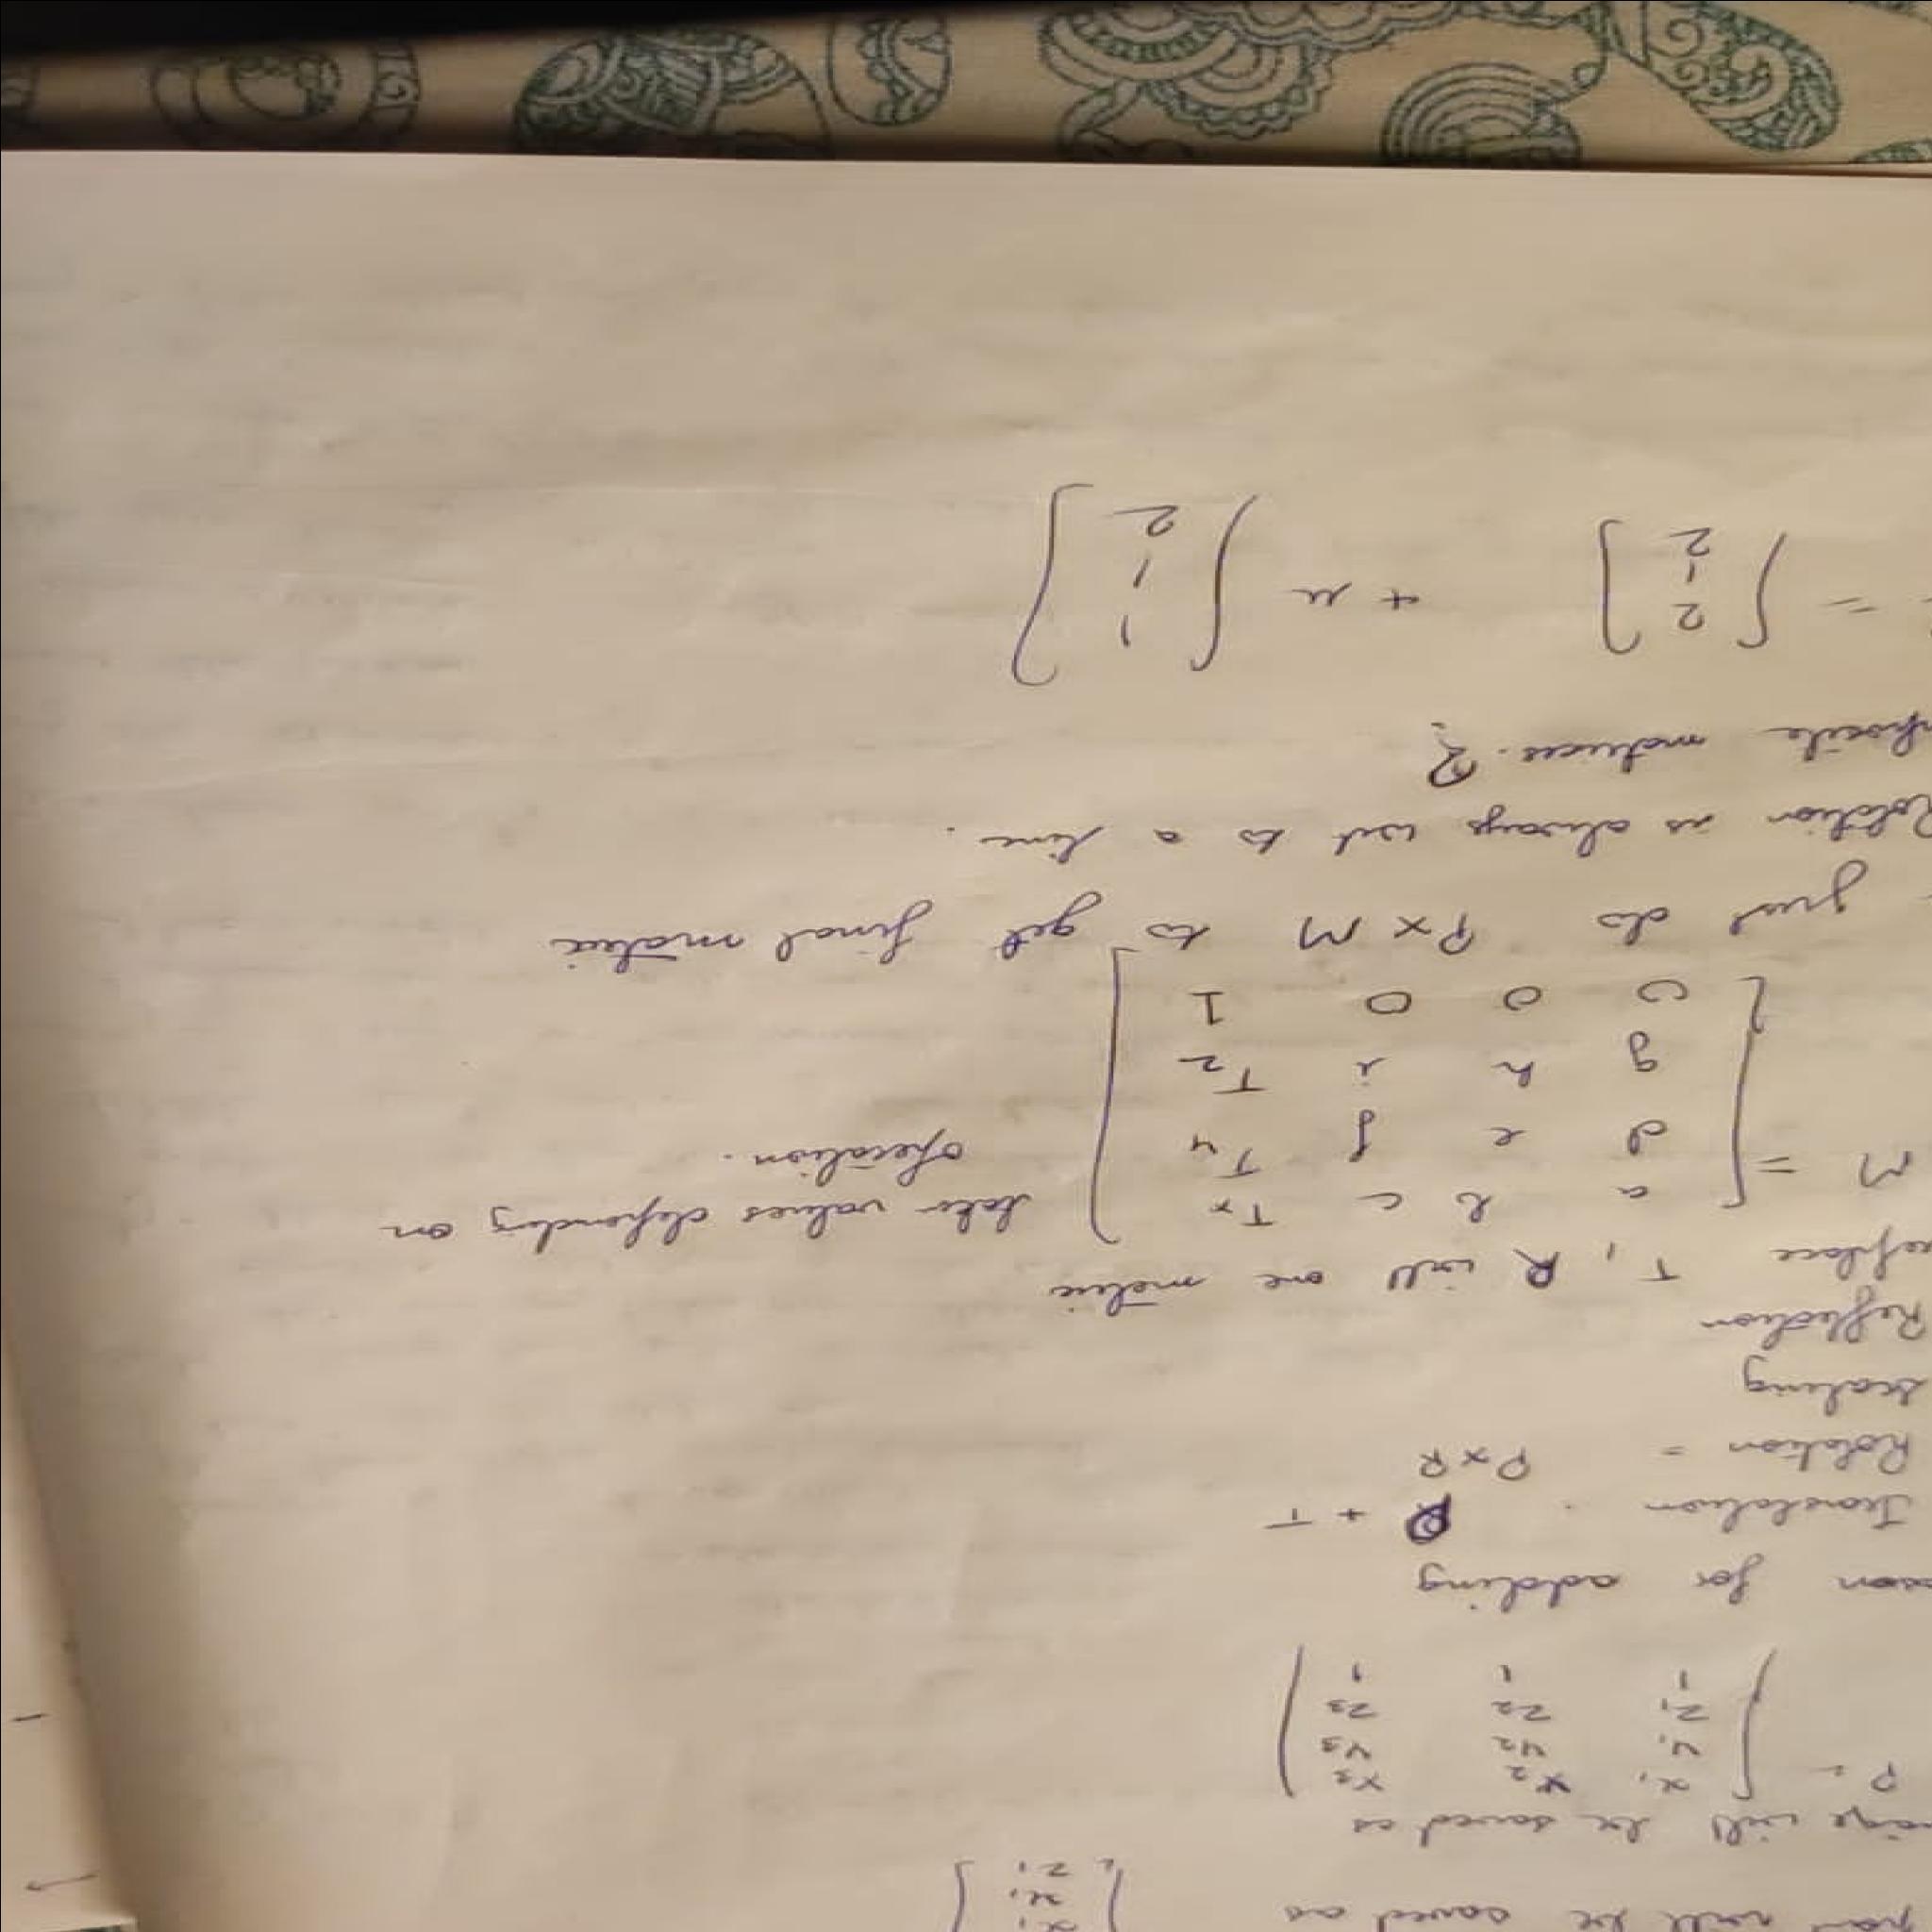 will be saved as [x1
x1
z1]
will be saved as
P = [x1 x2 x3
y1 y2 y3
z1 z2 z3
1 1 1]
for adding
Translation . P + T
Rotation = P x R
Scaling
Reflection
replace T, R will one matrix
M = [a b c Tx
d e f Ty
g h i Tz
0 0 0 1]
take values depending on
operation.
just do P x M to get final matrix
Rotation is always wrt to a line.
matrices. ?
= [2
1
2] + u [1
1
2]